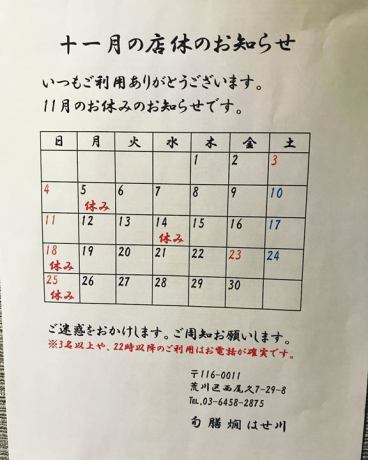 十一月の店休のお知らせ
いつもご利用ありがとうございます。
11月のお休みのお知らせです。
日 月 火 水 木 金 土
1 2 3
4 5 6 7 8 9 10
休み
11 12 13 14 15 16 17
休み
18 19 20 21 22 23 24
休み
25 26 27 28 29 30
休み
ご迷惑をおかけします。ご周知お願いします。
※3名以上や、22時以降のご利用はお電話が確実です。
〒116-0011
荒川区西尾久7-29-8
TEL,03-6458-2875
旬膳燗はせ川